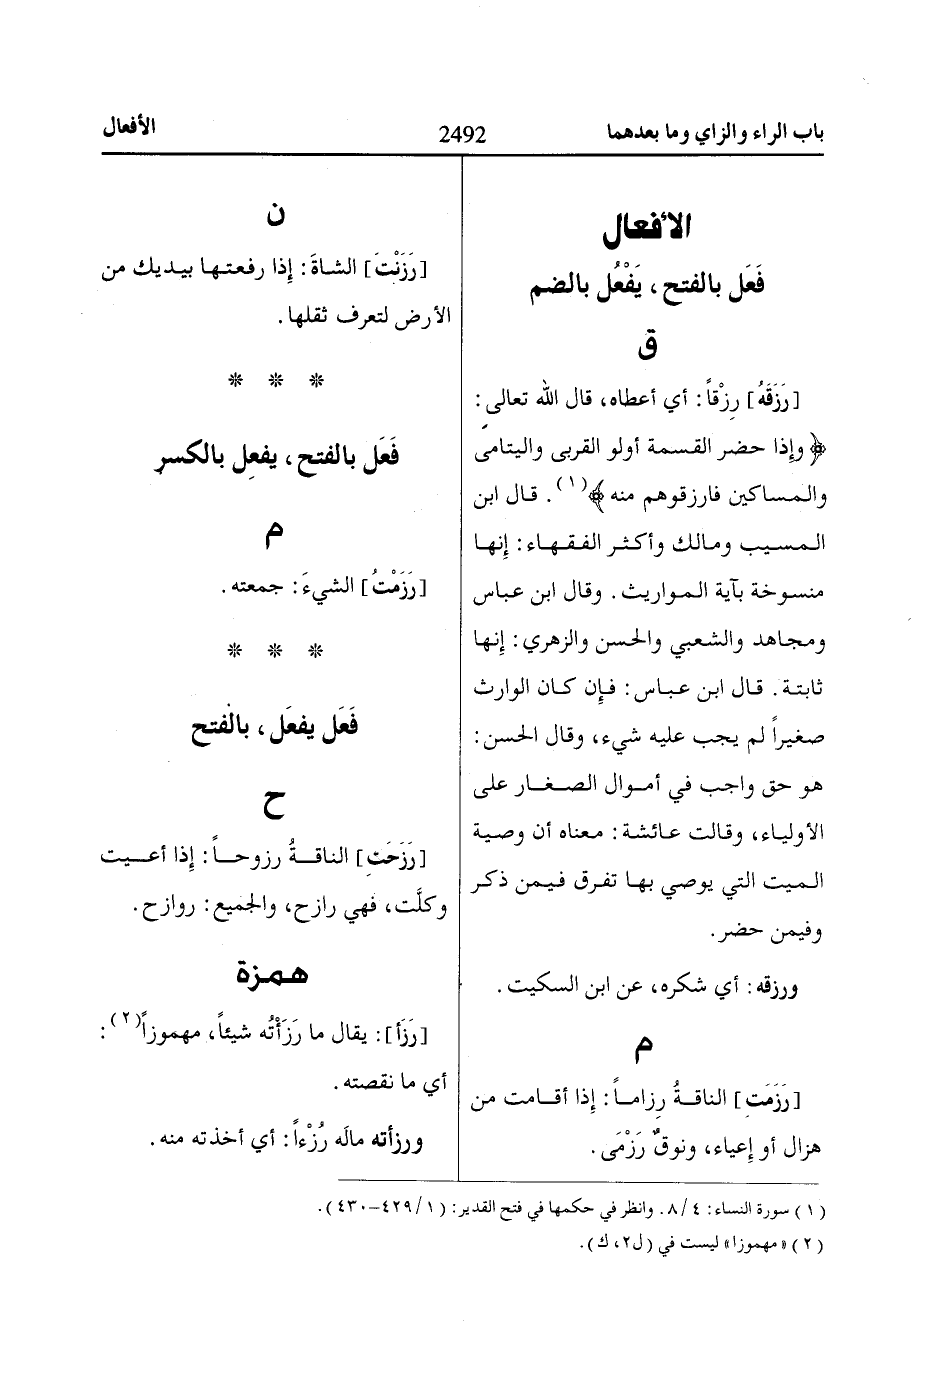 باب الراء والزاي وما بعدهما
2492
الأفعال
الأفعال
فَعَل بالفتح، يَفْعُل بالضم
ق
[رَزَقَهُ] رِزْقاً: أي أعطاه، قال الله تعالى:
﴿وإِذا حضر القسمة أولو القربى واليتامى
والمساكين فارزقوهم منه﴾(١). قال ابن
المسيب ومالك وأكثر الفقهاء: إِنها
منسوخة بآية المواريث. وقال ابن عباس
ومجاهد والشعبي والحسن والزهري: إِنها
ثابتة. قال ابن عباس: فإِن كان الوارث
صغيراً لم يجب عليه شيء، وقال الحسن:
هو حق واجب في أموال الصغار على
الأولياء، وقالت عائشة: معناه أن وصية
الميت التي يوصي بها تفرق فيمن ذكر
وفيمن حضر.
ورزقه: أي شكره، عن ابن السكيت.
م
[رَزَمَت] الناقةُ رِزاماً: إِذا أقامت من
هزال أو إِعياء، ونوقٌ رَزْمَى.
ن
[رَزَنْتَ] الشاةَ: إِذا رفعتها بيديك من
الأرض لتعرف ثقلها.
* * *
فَعَل بالفتح، يفعِل بالكسر
م
[رَزَمْتُ] الشيءَ: جمعته.
* * *
فَعَل يفعَل، بالفتح
ح
[رَزَحَت] الناقةُ رزوحاً: إِذا أعيت
وكلَّت، فهي رازح، والجميع: روازح.
همزة
[رَزَأ]: يقال ما رَزَأْتُه شيئاً، مهموزاً(٢):
أي ما نقصته.
ورزأته مالَه رُزْءاً: أي أخذته منه.
(١) سورة النساء: ٤/٨. وانظر في حكمها في فتح القدير: (١/٤٢٩-٤٣٠).
(٢) «مهموزا» ليست في (ل٢، ك).